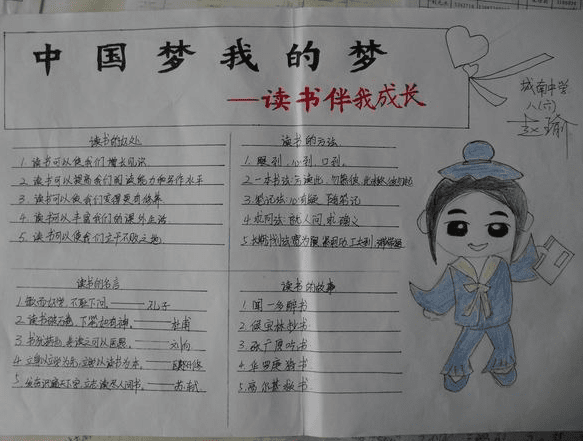 中国梦我的梦
——读书伴我成长
城南中学
八(六)
读书的好处
1. 读书可以使我们增长见识
2. 读书可以提高我们阅读能力和写作水平
3. 读书可以使我们变得更有修养
4. 读书可以丰富我们的课外生活
5. 读书可以使我们立于不败之地
读书的方法
1. 眼到,心到,口到。
2. 一本书法:
3. 笔记法:
4. 求问法:
5.
读书的名言
1. 敏而好学,不耻下问。——孔子
2. 读书破万卷,下笔如有神。——杜甫
3. 书犹药也,善读之可以医愚。——刘向
4. 立身以立学为先,立学以读书为本。——欧阳修
5. 发奋识遍天下字,立志读尽人间书。——苏轼
读书的故事
1. 闻一多醉书
2. 侯宝林抄书
3. 张广厚吃书
4. 华罗庚猜书
5. 高尔基救书